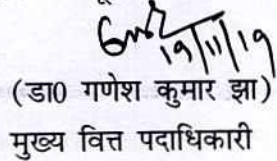 19/11/19
(डा0 गणेश कुमार झा)
मुख्य वित्त पदाधिकारी